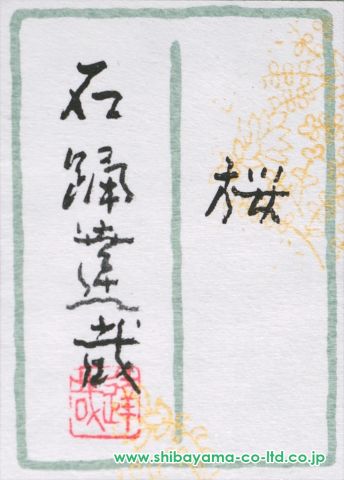 桜
石踊達哉
達哉
www.shibayama-co-ltd.co.jp